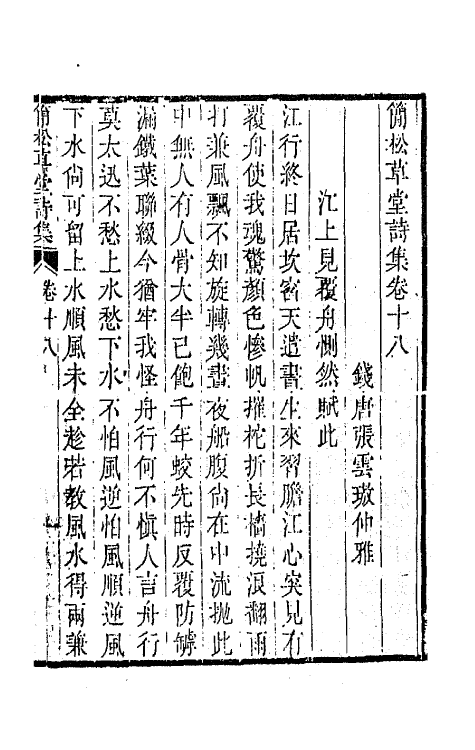 簡松草堂詩集卷十八
錢唐張雲璈仲雅
江上見覆舟惻然賦此
江行終日居坎窞天遣書生來習膽江心突見有
覆舟使我魂驚顏色慘帆摧柁折長檣撓浪翻雨
打兼風飄不知旋轉幾晝夜船腹尚在中流拋此
中無人有人骨大半已飽千年蛟先時反覆防罅
漏鐵葉聯綴今猶牢我怪舟行何不慎人言舟行
莫太迅不愁上水愁下水不怕風逆怕風順逆風
下水尚可留上水順風未全趁若教風水得兩兼
簡松草堂詩集
卷十八